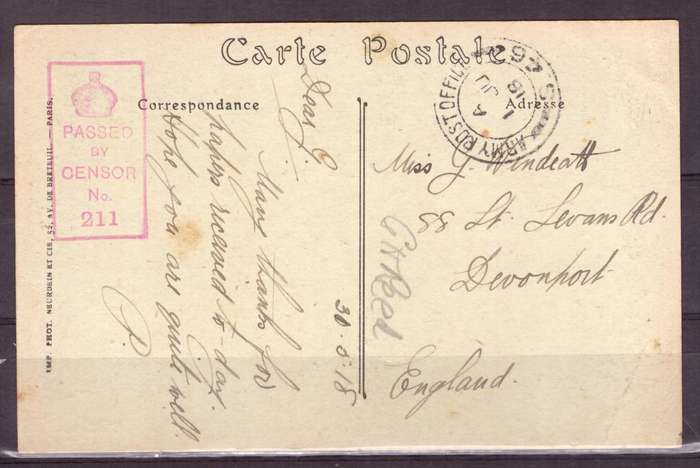 Carte Postale
Correspondance
Adresse
PASSED
BY
CENSOR
No.
211
ARMY POST OFFICE
A
1 JU
18
30.5.18
Dear
Many thanks for
papers received to-day.
Hope you are quite well.
P.
Miss J. Windeatt
88 St. Levans Rd.
Devonport
England.
IMP. PHOT. NEURDEIN ET CIE, 52, AV. DE BRETEUIL — PARIS.